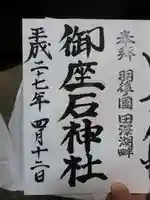 奉拝 羽後の國 田澤湖畔
御座石神社
平成二十七年 四月十二日